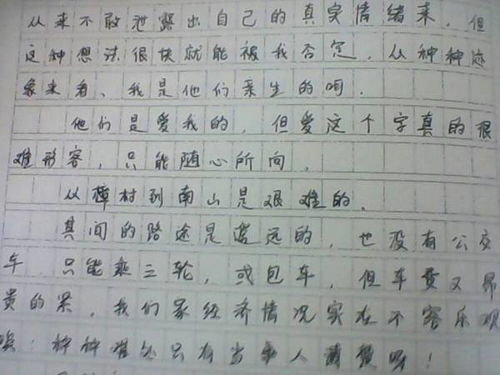 从来不敢泄露出自己的真实情绪来，但
这种想法很快就能被我否定，从种种迹
象来看、我是他们亲生的呵．
他们是爱我的，但爱这个字真的很
难形容，只能随心所向．
从樟村到南山是艰难的．
其间的路途是遥远的，也没有公交
车 只能乘三轮，或包车，但车费又昂
贵的累，我们家经济情况实在不容乐观
唉！种种难处只有当事人清楚呀！